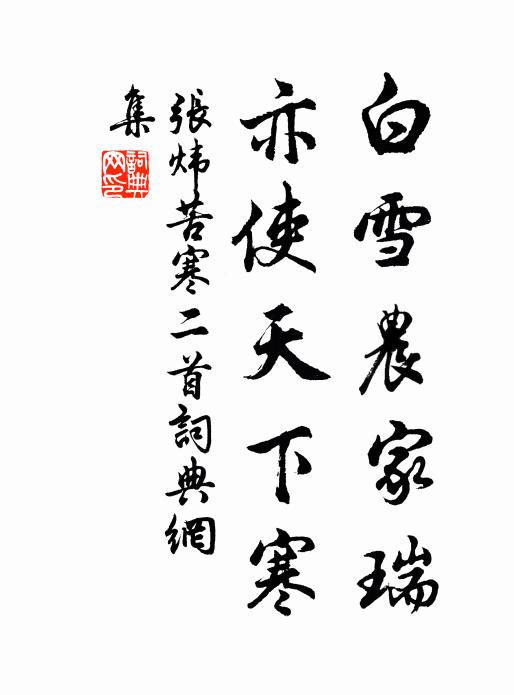 白雪農家瑞
亦使天下寒
張煒苦寒二首詞典網
集
詞典網印